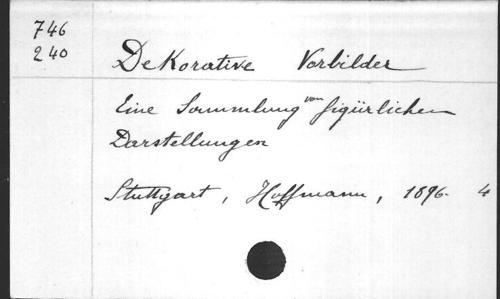 746
240
Dekorative Vorbilder
Eine Sammlung von figürlichen
Darstellungen
Stuttgart, Hoffmann, 1896. 4